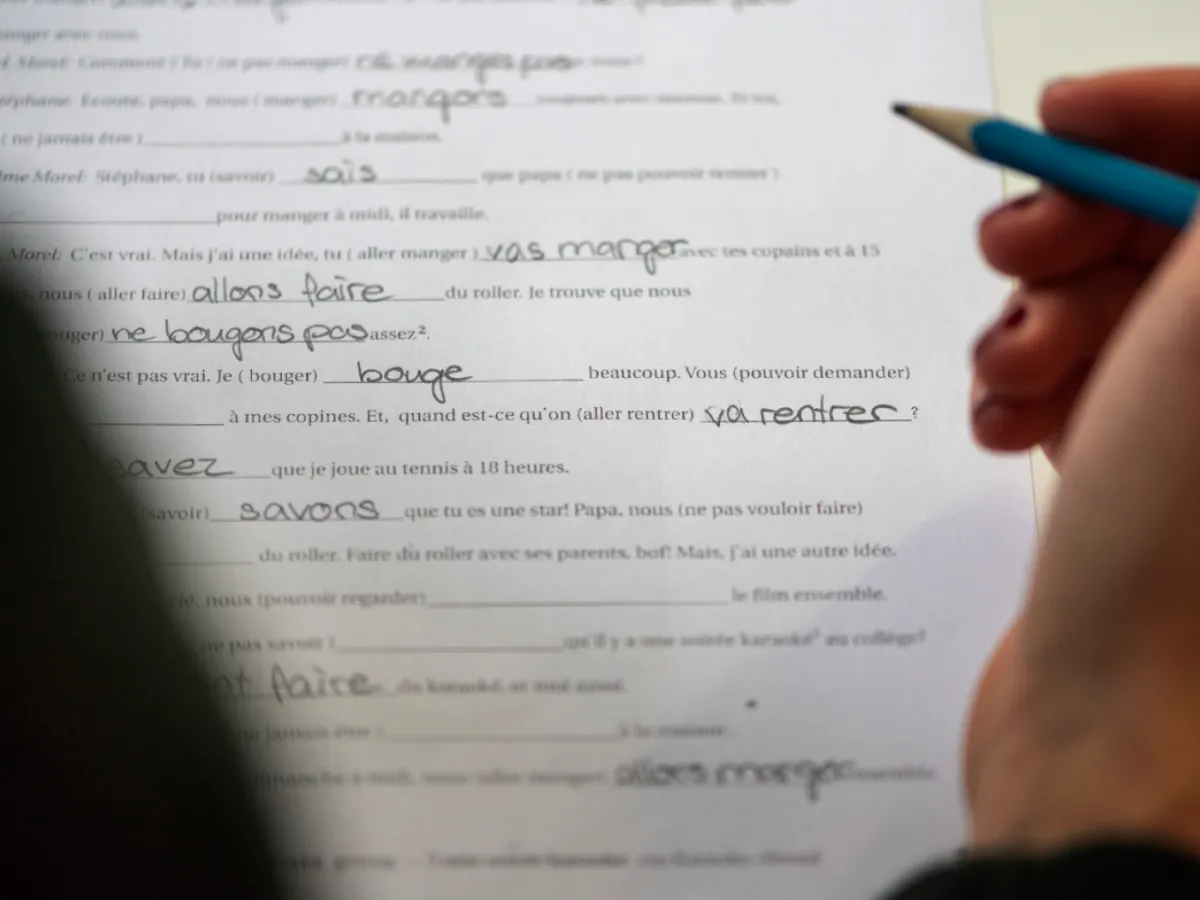 manger avec vous.
Morel: Comment? Tu (ne pas manger) ne manges pas
Stéphane: Ecoute, papa, nous (manger) mangons
( ne jamais être ) ____ à la maison.
Mme Morel: Stéphane, tu (savoir) sais que papa ( ne pas pouvoir rentrer )
____ pour manger à midi, il travaille.
Morel: C'est vrai. Mais j'ai une idée, tu ( aller manger ) vas manger avec tes copains et à 15
nous ( aller faire) allons faire du roller. Je trouve que nous
ne bougons pas assez².
Ce n'est pas vrai. Je ( bouger) bouge beaucoup. Vous (pouvoir demander)
____ à mes copines. Et, quand est-ce qu'on (aller rentrer) va rentrer ?
savez que je joue au tennis à 18 heures.
(savoir) savons que tu es une star! Papa, nous (ne pas vouloir faire)
____ du roller. Faire du roller avec ses parents, bof! Mais, j'ai une autre idée.
nous (pouvoir regarder) ____ le film ensemble.
ne pas savoir ) ____ qu'il y a une soirée karaoké³ au collège?
faire du karaoké,
ne jamais être ) ____ à la maison.
dimanche à midi, nous (aller manger) allons manger ensemble.